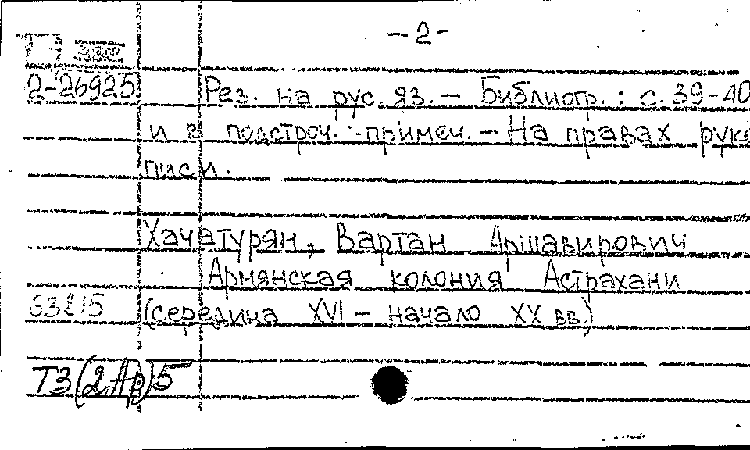 -2-
2-26925 Рез. на рус. яз. – Библиогр.: с.39-40
и в подстроч. примеч. – На правах руко
писи.
Хачатурян, Вартан Аршавирович
Армянская колония Астрахани
(середина XVI – начало XX вв.)
Т3(2Ар)5